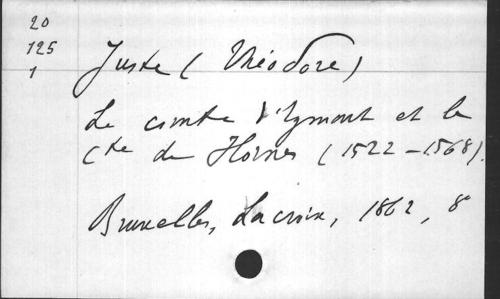 20
125
1
Juste (Théodore)
Le comte d'Egmont et le
Cte de Hornes (1522-1568).
Bruxelles, Lacroix, 1862, 8°